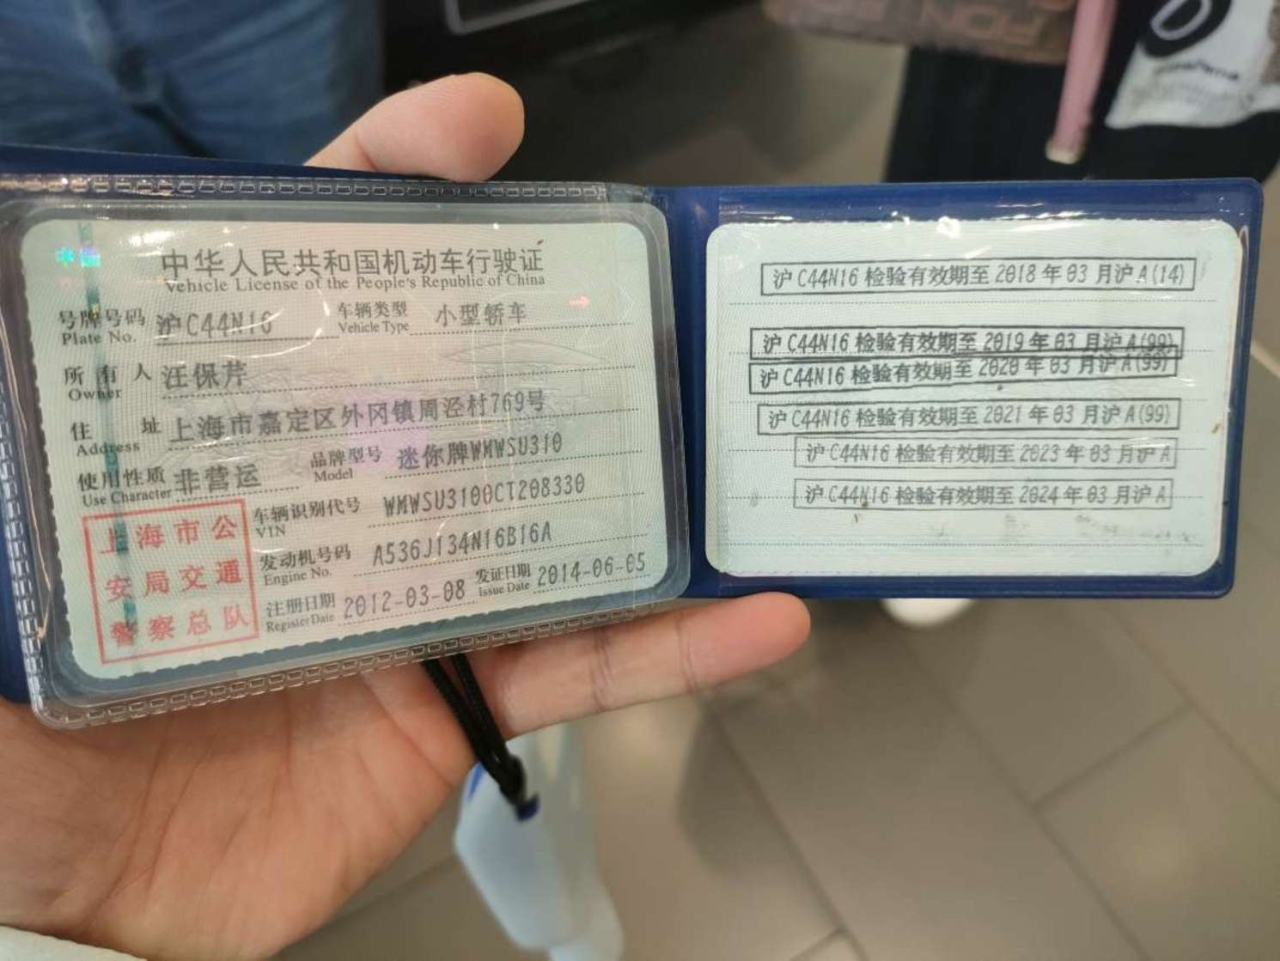 中华人民共和国机动车行驶证
Vehicle License of the People's Republic of China
号牌号码 沪C44N16 车辆类型 小型轿车
Plate No. Vehicle Type
所有人 汪保芹
Owner
住址 上海市嘉定区外冈镇周泾村769号
Address
使用性质 非营运 品牌型号 迷你牌WMWSU310
Use Character Model
车辆识别代号 WMWSU3100CT208330
VIN
发动机号码 A536J134N16B16A
Engine No.
注册日期 2012-03-08 发证日期 2014-06-05
Register Date Issue Date
上海市公
安局交通
警察总队
沪C44N16 检验有效期至 2018 年 03 月沪A(14)
沪C44N16 检验有效期至 2019 年 03 月沪A(99)
沪C44N16 检验有效期至 2020 年 03 月沪A(99)
沪C44N16 检验有效期至 2021 年 03 月沪A(99)
沪C44N16 检验有效期至 2023 年 03 月沪A
沪C44N16 检验有效期至 2024 年 03 月沪A